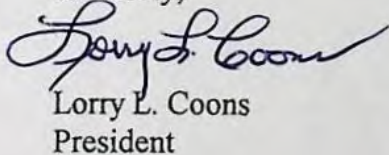 Lorry L. Coons
Lorry L. Coons
President